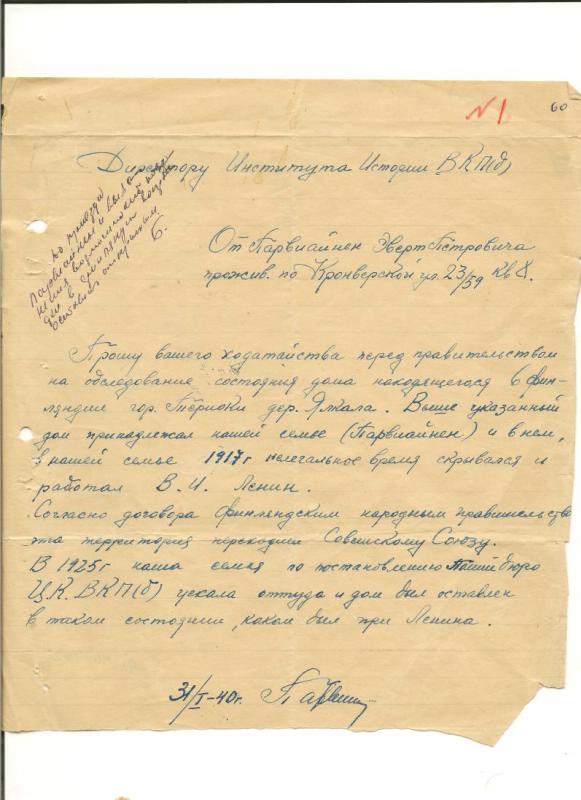 № 1
60
Директору Института Истории ВКП(б)
до приезда
Парвиайнен и выяс
нения возможностей поезд
ки в Финляндию вопрос
оставить открытым
Б.
От Парвиайнен Эверт Петровича
прожив. по Кронверской ул. 23/59 кв 8.
Прошу вашего ходатайства перед правительством
на обследование состояния дома находящегося в фин-
ляндии гор. Териоки дер. Ялкала. Выше указанный
дом принадлежал нашей семье (Парвиайнен) и в нем,
в нашей семье 1917г нелегальное время скрывался и
работал В. И. Ленин.
Согласно договора финляндским народным правительство
эта территория переходит Советскому Союзу.
В 1925г наша семья по постановлению бюро
Ц.К. ВКП(б) уехала оттуда и дом был оставлен
в таком состоянии, каком был при Ленина.
31/I-40г.